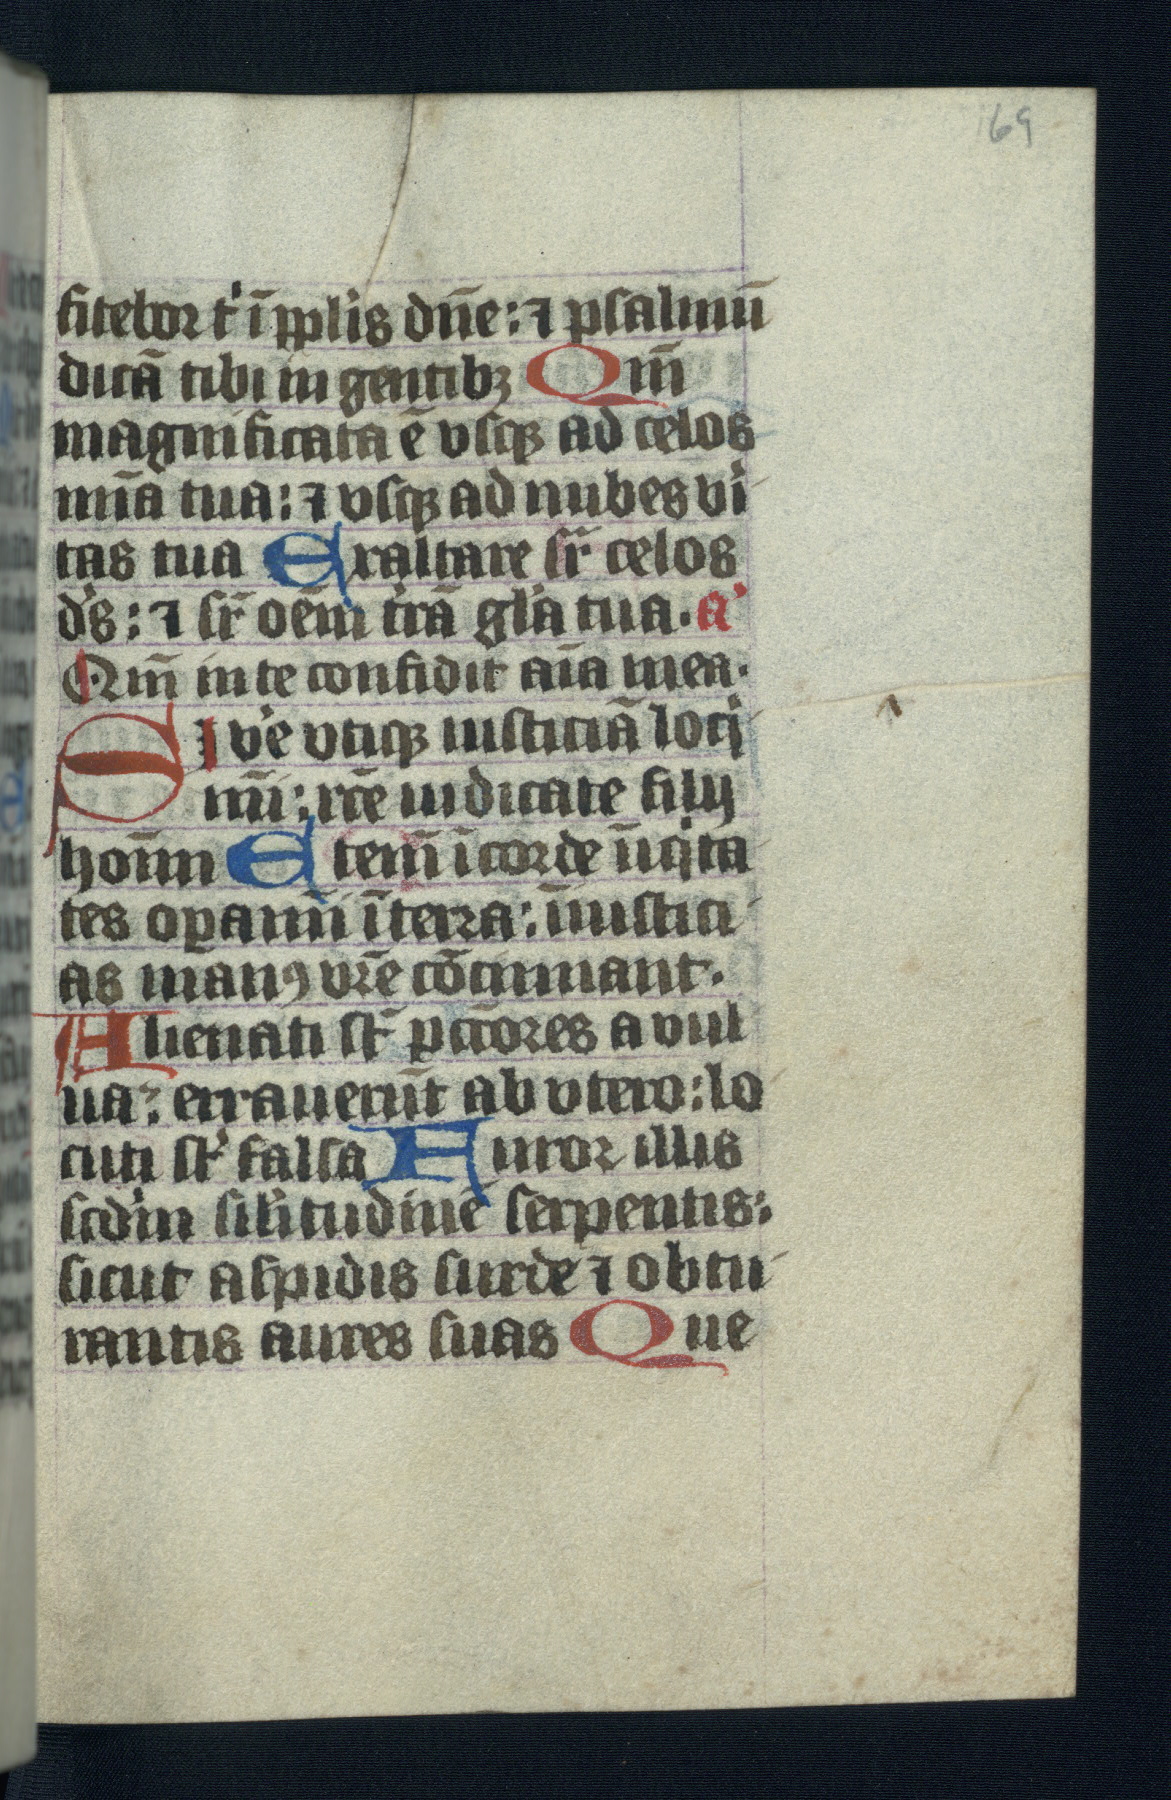 169
fitebor t' ī pp̄lis dn̄e: ⁊ psalmū
dicā tibi in gentibꝫ Qm̄
magnificata ē vsqꝫ ad celos
mīa tua: ⁊ vsqꝫ ad nubes vi
tas tua Exaltare sr̄ celos
ds̄: ⁊ sr̄ oēm trā gl'a tua. a'
Qm̄ in te confidit aīa mea.
Si v'e vtiqꝫ iusticiā loq̇
mī: rc̄e iudicate filij
hoīm Etem̄ ī corde īiq̇ta
tes oꝑamī ī terra: īiustici
as manꝯ vr̄e cōcinnant.
Alienati st̄ pctōres a vul
ua: errauerūt ab vtero: lo
cuti st̄ falsa Furor illis
scd'm sil'itudinē serpentis:
sicut aspidis surde ⁊ obtu
rantis aures suas Que